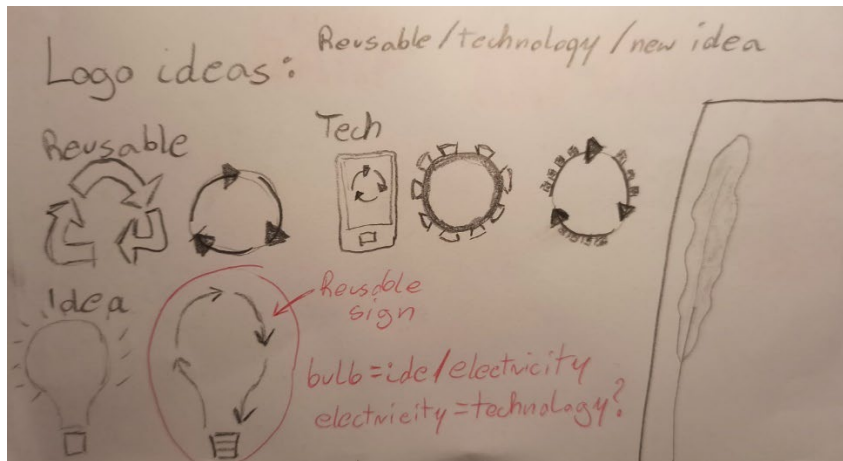 Logo ideas:
Reusable/technology/new idea
Reusable
Tech
Idea
Reusable
sign
bulb=ide/electricity
electricity=technology?